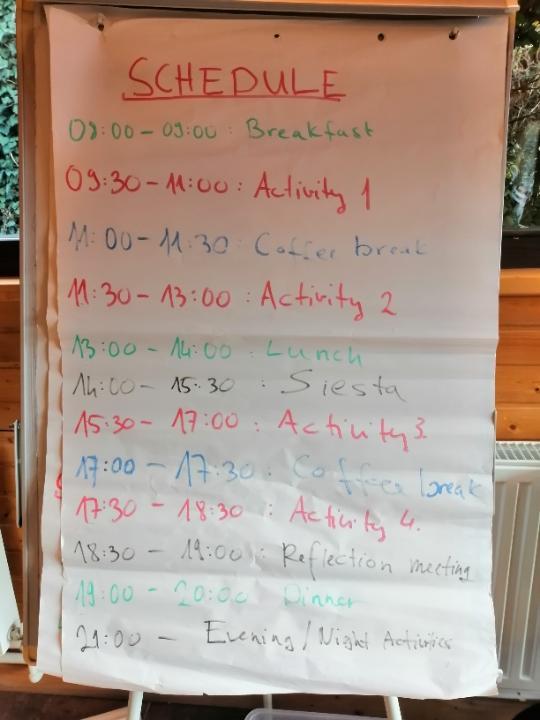 SCHEDULE
08:00 - 09:00 : Breakfast
09:30 - 11:00 : Activity 1
11:00 - 11:30 : Coffee break
11:30 - 13:00 : Activity 2
13:00 - 14:00 : Lunch
14:00 - 15:30 : Siesta
15:30 - 17:00 : Activity 3.
17:00 - 17:30 : Coffee break
17:30 - 18:30 : Activity 4.
18:30 - 19:00 : Reflection meeting
19:00 - 20:00 Dinner
21:00 - Evening / Night Activities